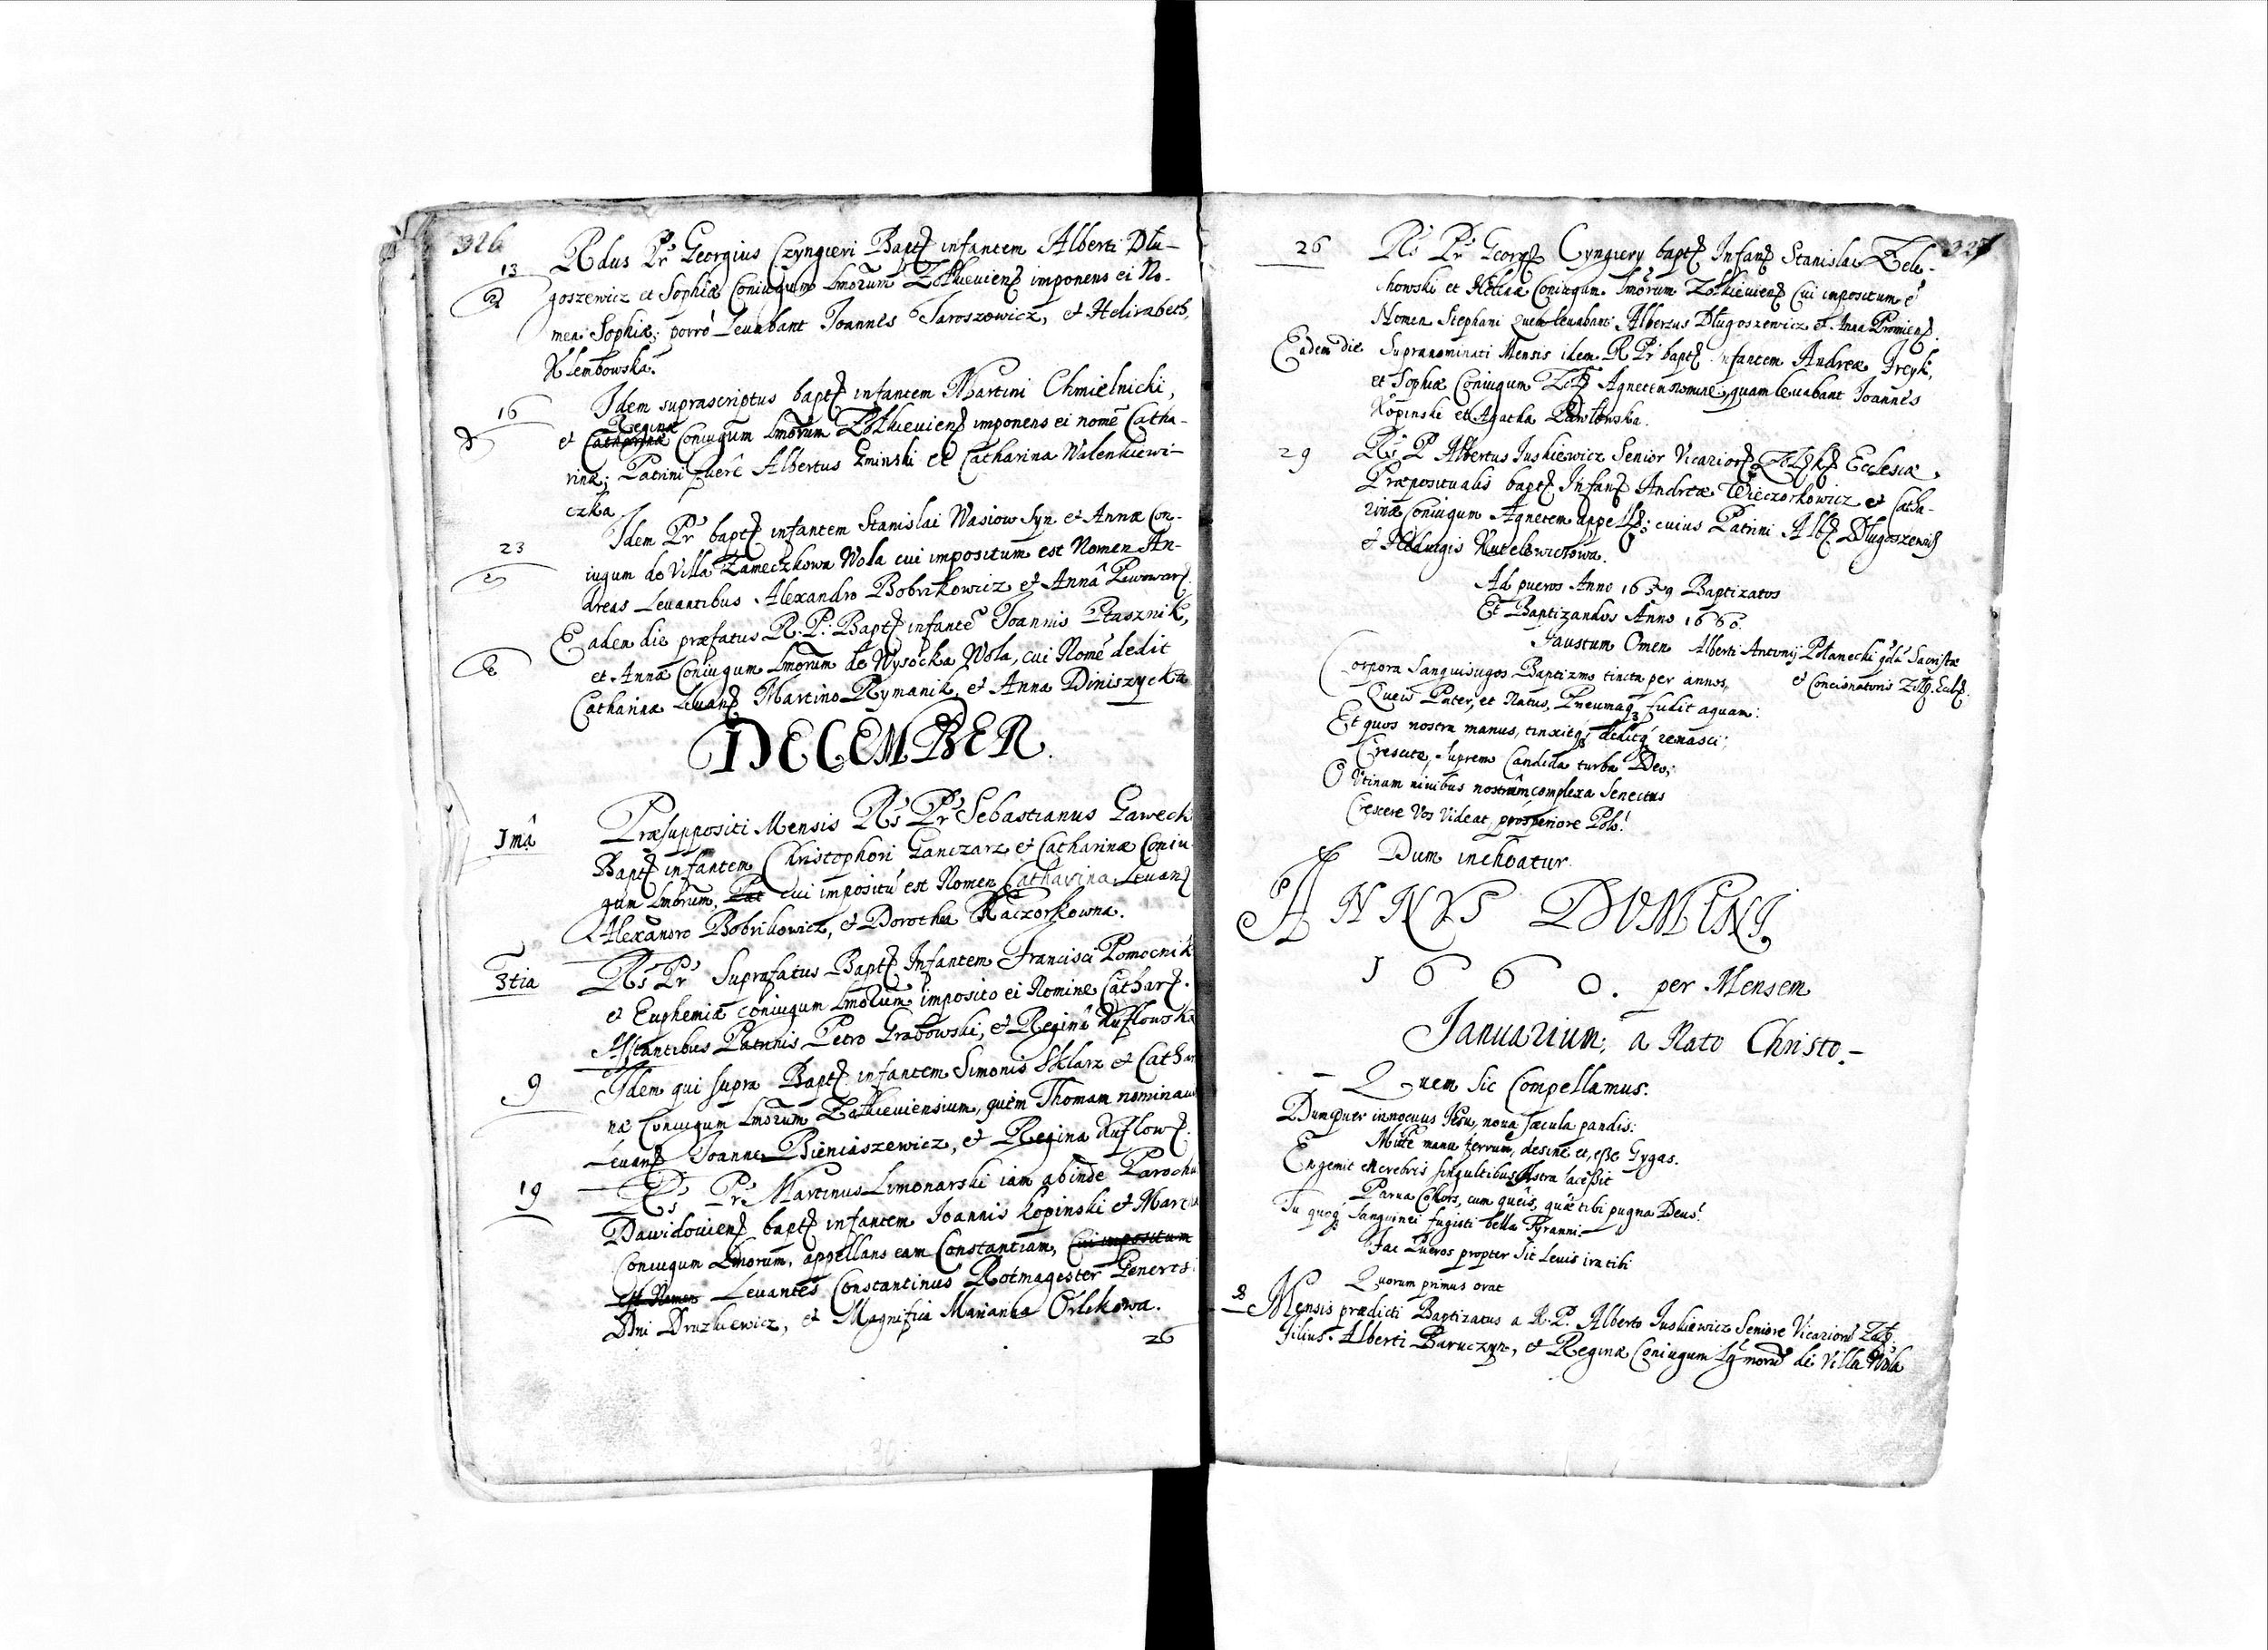 326
13 Rdus Pr Georgius Czyngieri Bapt. infantem Alberti Dłu-
goszewicz et Sophiæ Coniugum Lmorum Zołkieuiens imponens ei No-
men Sophiæ; porrò Leuabant Joannes Jaroszewicz, et Helizabeth
Klembowska.
16 Idem suprascriptus bapt. infantem Martini Chmielnicki,
Reginæ
et Catharinæ Coniugum Lmorum Zołkieuiens imponens ei nome Catha-
rina; Patrini fuerē Albertus Zminski et Catharina Walenkiewi-
czka
23 Idem Pr bapt. infantem Stanislai Wasiow Syn et Annæ Con-
iugum de Villa Zameczkowa Wola cui impositum est Nomen An-
dreas Leuantibus Alexandro Bobrikowicz et Annâ Piwowar.
Eadem die præfatus R. P. Bapt. infantē Joannis Ptasznik,
et Annæ Coniugum Lmorum de Wysocka Wola, cui Nomē dedit
Catharinæ Leuan. Martino Rymanik, et Anna Diniszycka
DECEMBER.
1mâ Præsuppositi Mensis Rs Pr Sebastianus Gaweck
Bapt. infantem Christophori Ganczarz et Catharinæ Coniu
gum Lmorum, Pat cui impositū est Nomen Catharina Leuan.
Alexandro Bobrikowicz, et Dorothea Kaczorkowna.
3tia Rs Pr Suprafatus Bapt. Infantem Francisci Pomocnik
et Euphemiæ coniugum Lmorum imposito ei Nomine Cathar.
Astantibus Patrinis Petro Grabowski, et Reginâ Kuflowska
9 Idem qui supra Bapt. infantem Simonis Sklarz et Cathari
næ Coniugum Lmorum Zołkieuiensium, quem Thomam nominaui
Leuan. Joanne Bieniaszewicz, et Regina Kuflow.
19 Rs Pr Martinus Limonarski iam abinde Parochu
Dawidouien. bapt. infantem Joannis Kopinski et Mar
Coniugum Lmorum, appellans eam Constantiam, Cui impositum
est Nomen Leuantes Constantinus Rotmagester Generos
Dni Druzkiewicz, et Magnifica Marianna Orlikowa.
26
327
26 Rs Pr Georg. Cyngiery bapt. Infan. Stanislai Zele-
chowski et Helenæ Coniugum Lmorum Zołkieuien. Cui impositum ē
Nomen Stephani Quem leuabant Albertus Długoszewicz et Anna Promien.
Eadem die Supranominati Mensis idem R Pr bapt. Infantem Andreæ Freyk,
et Sophiæ Coniugum Agnetem nomine, quam leuabant Joannes
Kopinski et Agatha Pawłowska.
29 Rs P Albertus Juskiewicz Senior Vicarior. Ecclesiæ
Præpositualis bapt. Infan. Andreæ Wieczorkowicz et Catha-
rinæ Coniugum Agnetem appell: cuius Patrini Alb. Długoszewicz
et Heduigis
Ad pueros Anno 1659 Baptizatos
Et Baptizandos Anno 1660.
Faustum Omen Alberti Antonij Polanecki Sacristæ
et Concionatoris
Corpora Sanguisugos Baptizmo tincta per annos,
Queis Pater, et Natus, Pneumaq; fudit aquam:
Et quos nostra manus, tinxitq; deditq; renasci;
Crescite, Supremo Candida turba Deo;
O Vtinam niuibus nostrûm complexa Senectus
Crescere Vos Videat, prosperiore Polo!
Dum inchoatur
ANNVS DOMINI
1660. per Mensem
Januarium, a Nato Christo.-
Quem Sic Compellamus.
Dum puer innocuus Jesu, noua sæcula pandis:
Mitte manu ferrum, desine et, esse Gygas.
Engemit en crebris singultibus Astra lacessit
Parua Cohors, cum queis, quæ tibi pugna Deus!
Tu quoq; Sanguinei fugisti bella Tyranni-
Fac Pueros propter Sit Leuis ira tibi
Quorum primus orat
8 Mensis prædicti Baptizatus a R. P. Alberto Juskiewicz Seniore Vicariorū
filius Alberti Baruczyn, et Reginæ Coniugum Lgmorū de Villa Wola